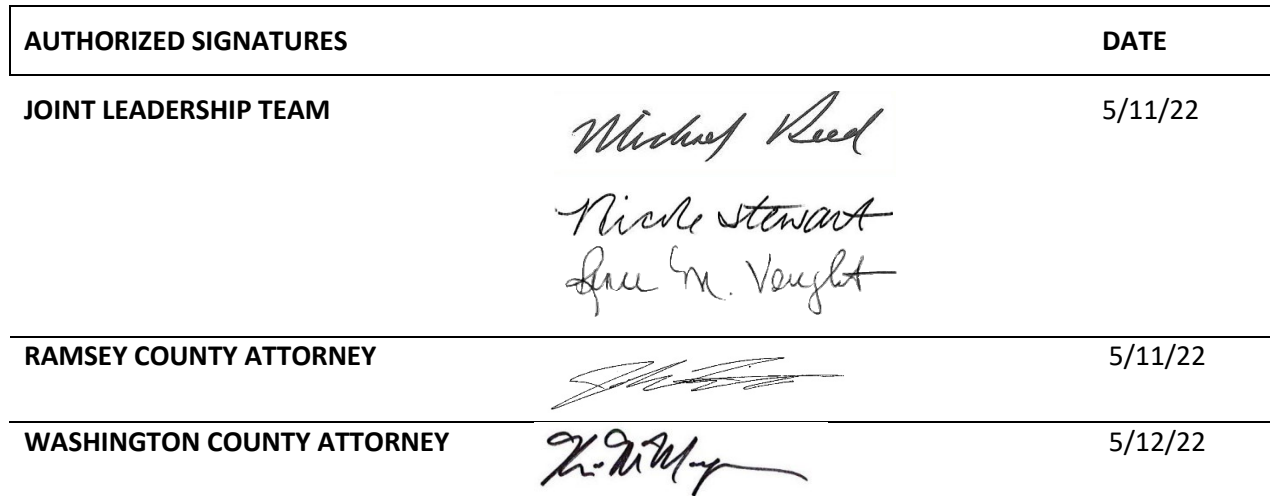 AUTHORIZED SIGNATURES DATE
JOINT LEADERSHIP TEAM Michael Reed 5/11/22
Nicole Stewart
M. Vought
RAMSEY COUNTY ATTORNEY 5/11/22
WASHINGTON COUNTY ATTORNEY 5/12/22